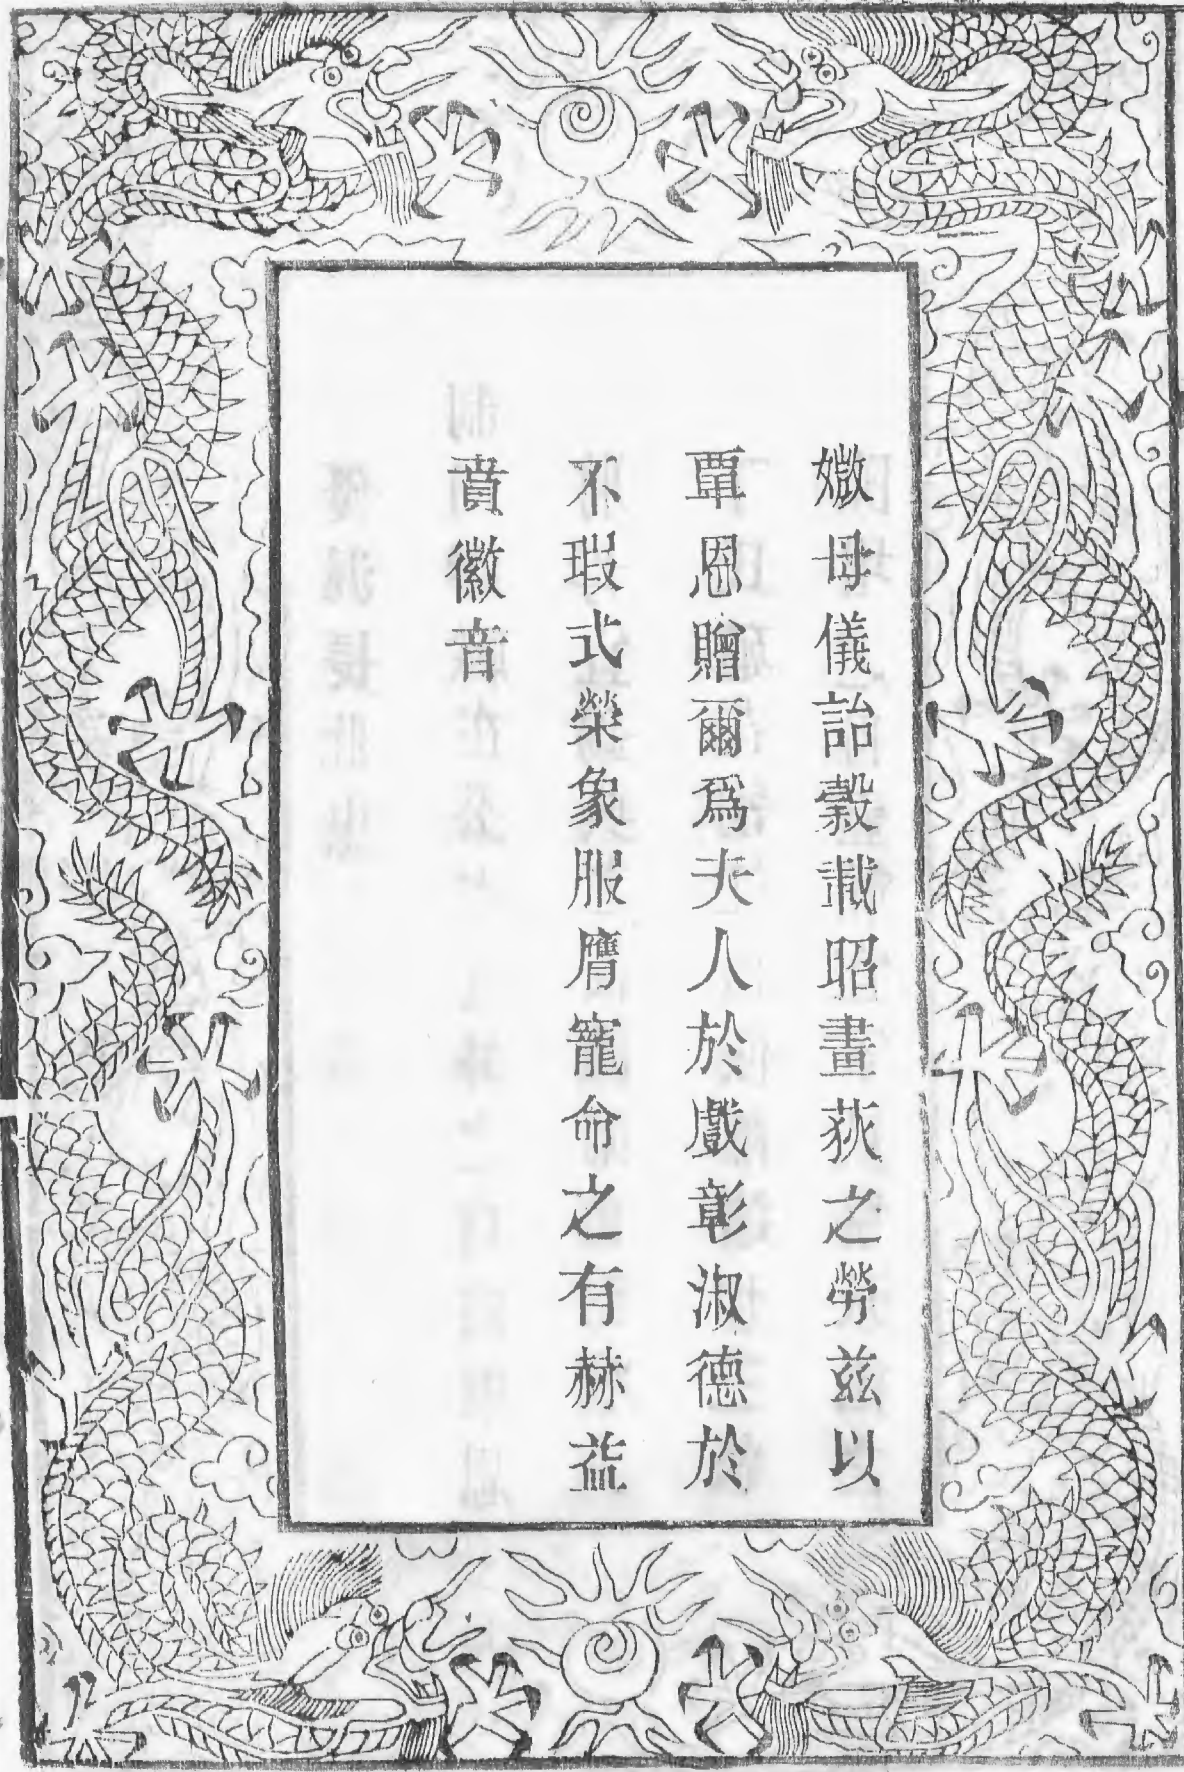 媺母儀詒穀載昭畫荻之勞茲以
覃恩贈爾爲夫人於戲彰淑德於
不瑕式榮象服膺寵命之有赫益
賁徽音